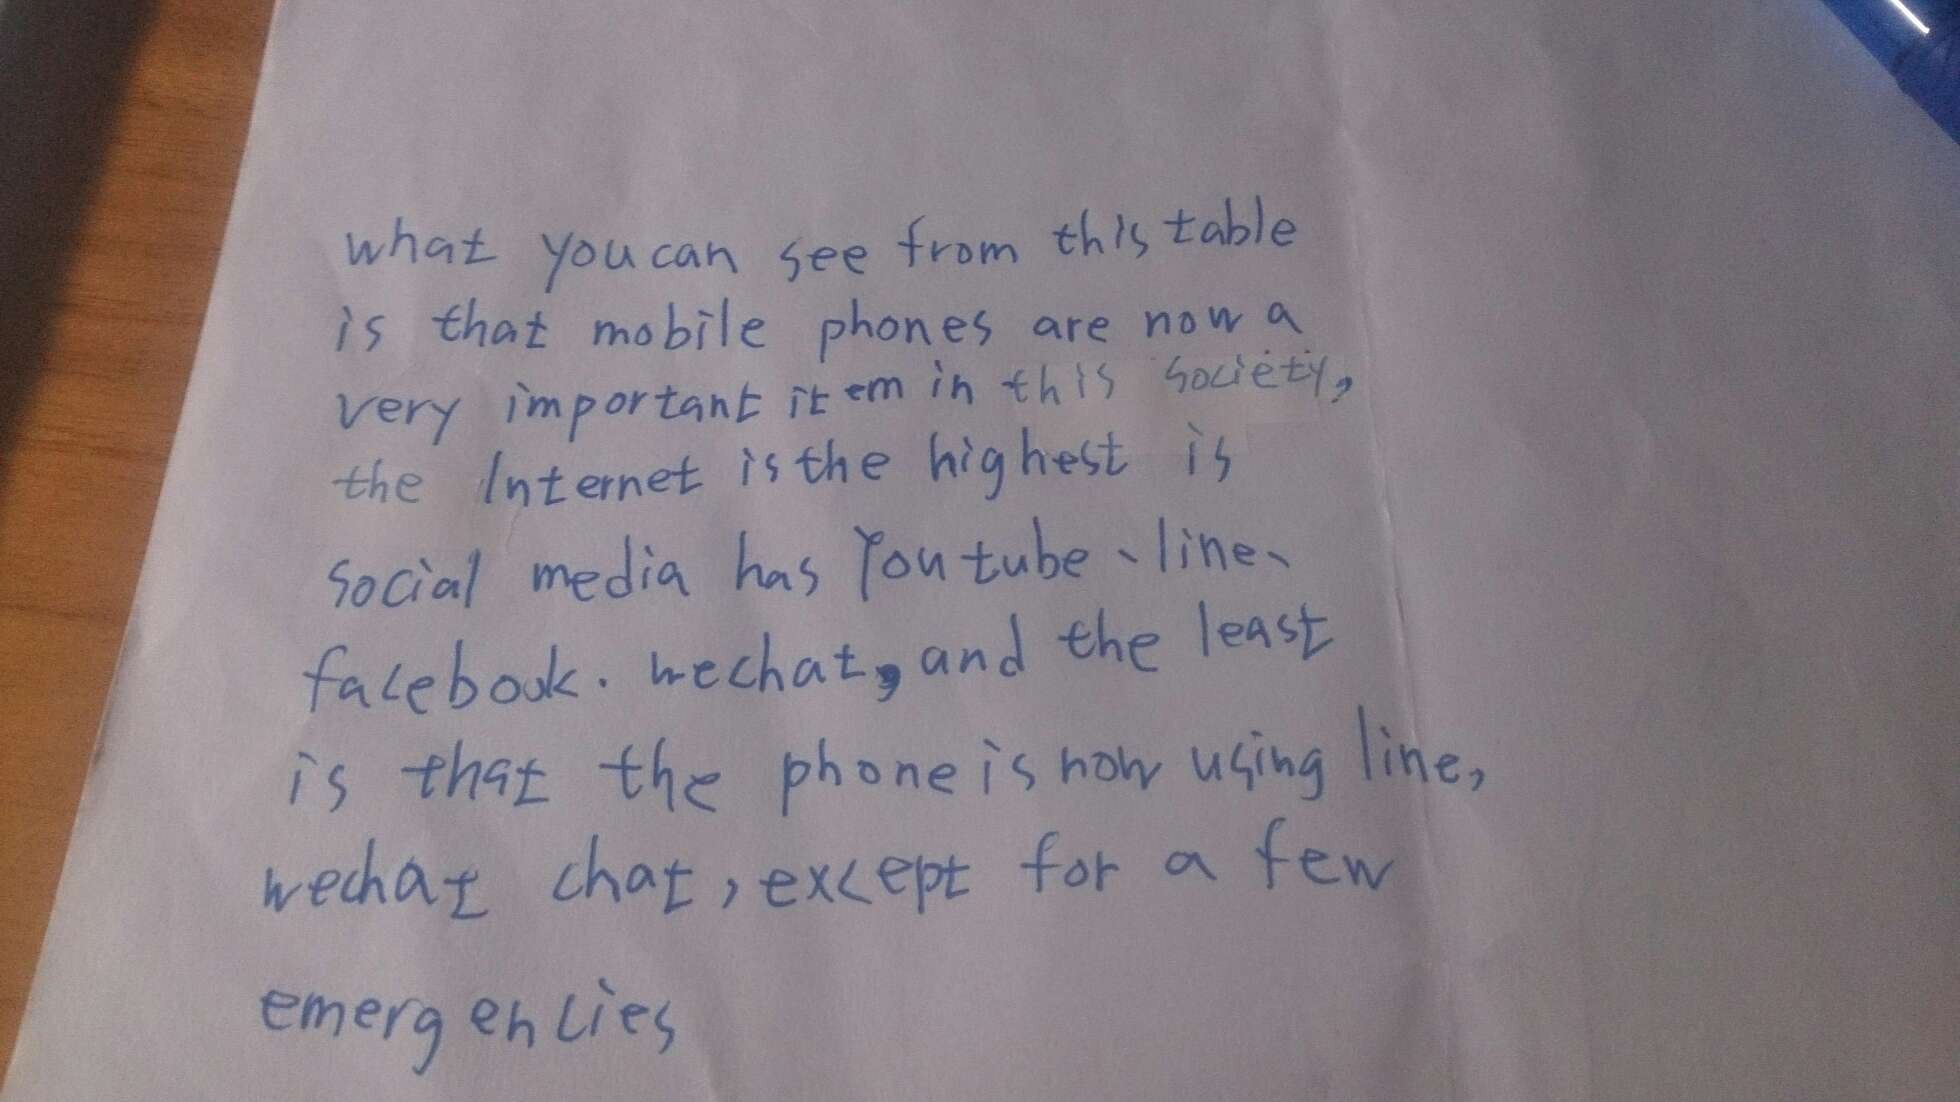 what you can see from this table
is that mobile phones are now a
very important item in this society,
the Internet is the highest is
social media has Youtube、line、
facebook. wechat, and the least
is that the phone is now using line,
wechat chat, except for a few
emergencies